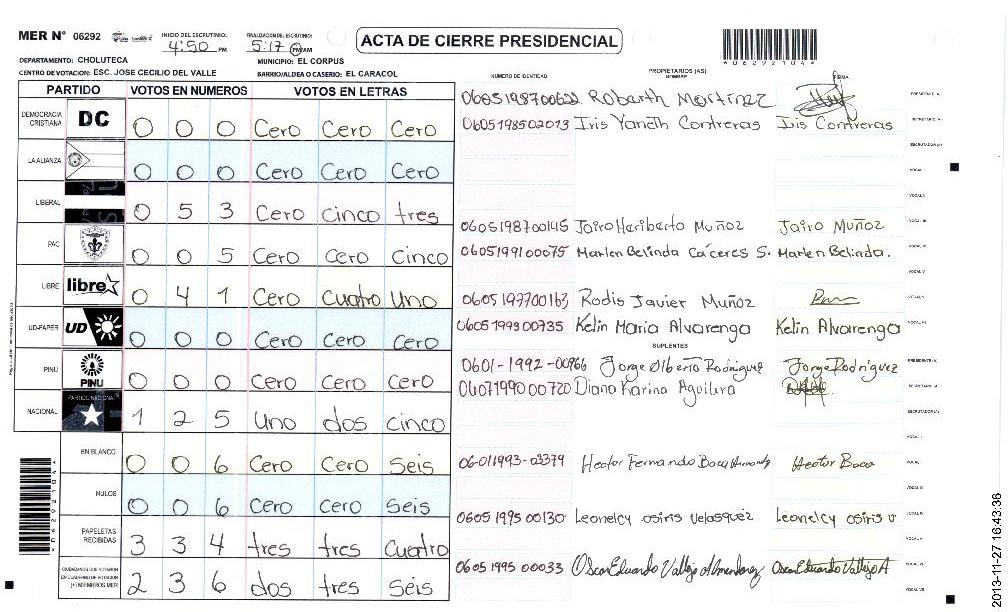 MER Nº 06292
INICIO DEL ESCRUTINIO: 4:50 PM
FINALIZACION DEL ESCRUTINIO: 5:17 PM/AM
ACTA DE CIERRE PRESIDENCIAL
*06292104*
DEPARTAMENTO: CHOLUTECA
MUNICIPIO: EL CORPUS
CENTRO DE VOTACION: ESC. JOSE CECILIO DEL VALLE
BARRIO/ALDEA O CASERIO: EL CARACOL
PARTIDO VOTOS EN NUMEROS VOTOS EN LETRAS
DEMOCRACIA CRISTIANA DC 0 0 0 Cero Cero Cero
LA ALIANZA 0 0 0 Cero Cero Cero
LIBERAL 0 5 3 Cero cinco tres
PAC 0 0 5 Cero Cero Cinco
LIBRE libre 0 4 1 Cero Cuatro Uno
UD-FAPER UD 0 0 0 Cero Cero Cero
PINU PINU 0 0 0 Cero Cero Cero
NACIONAL PARTIDO NACIONAL 1 2 5 Uno dos cinco
EN BLANCO 0 0 6 Cero Cero Seis
NULOS 0 0 6 Cero Cero Seis
PAPELETAS RECIBIDAS 3 3 4 tres tres Cuatro
CIUDADANOS QUE VOTARON EN CUADERNO DE VOTACION (+) MIEMBROS MER 2 3 6 dos tres Seis
NUMERO DE IDENTIDAD
PROPIETARIOS (AS)
NOMBRE
FIRMA
0605198700622 Roberth Martinez
0605198502013 Iris Yaneth Contreras Iris Contreras
0605198700145 Jairo Heriberto Muñoz Jairo Muñoz
0605199100075 Marlen Belinda Cáceres S. Marlen Belinda.
0605197700163 Rodis Javier Muñoz
0605199300735 Kelin Maria Alvarenga Kelin Alvarenga
SUPLENTES
0601-1992-00966 Jorge Alberto Rodriguez Jorge Rodriguez
0607199000720 Diana Karina Aguilera
06-011993-03379 Hector Fernando Boca Hector Boca
0605 1995 00130 Leonelcy osiris Velasquez Leonelcy osiris v
0605 1995 00033 Oscar Eduardo Vallejo Almendarez Oscar Eduardo Vallejo A
2013-11-27 16:43:36